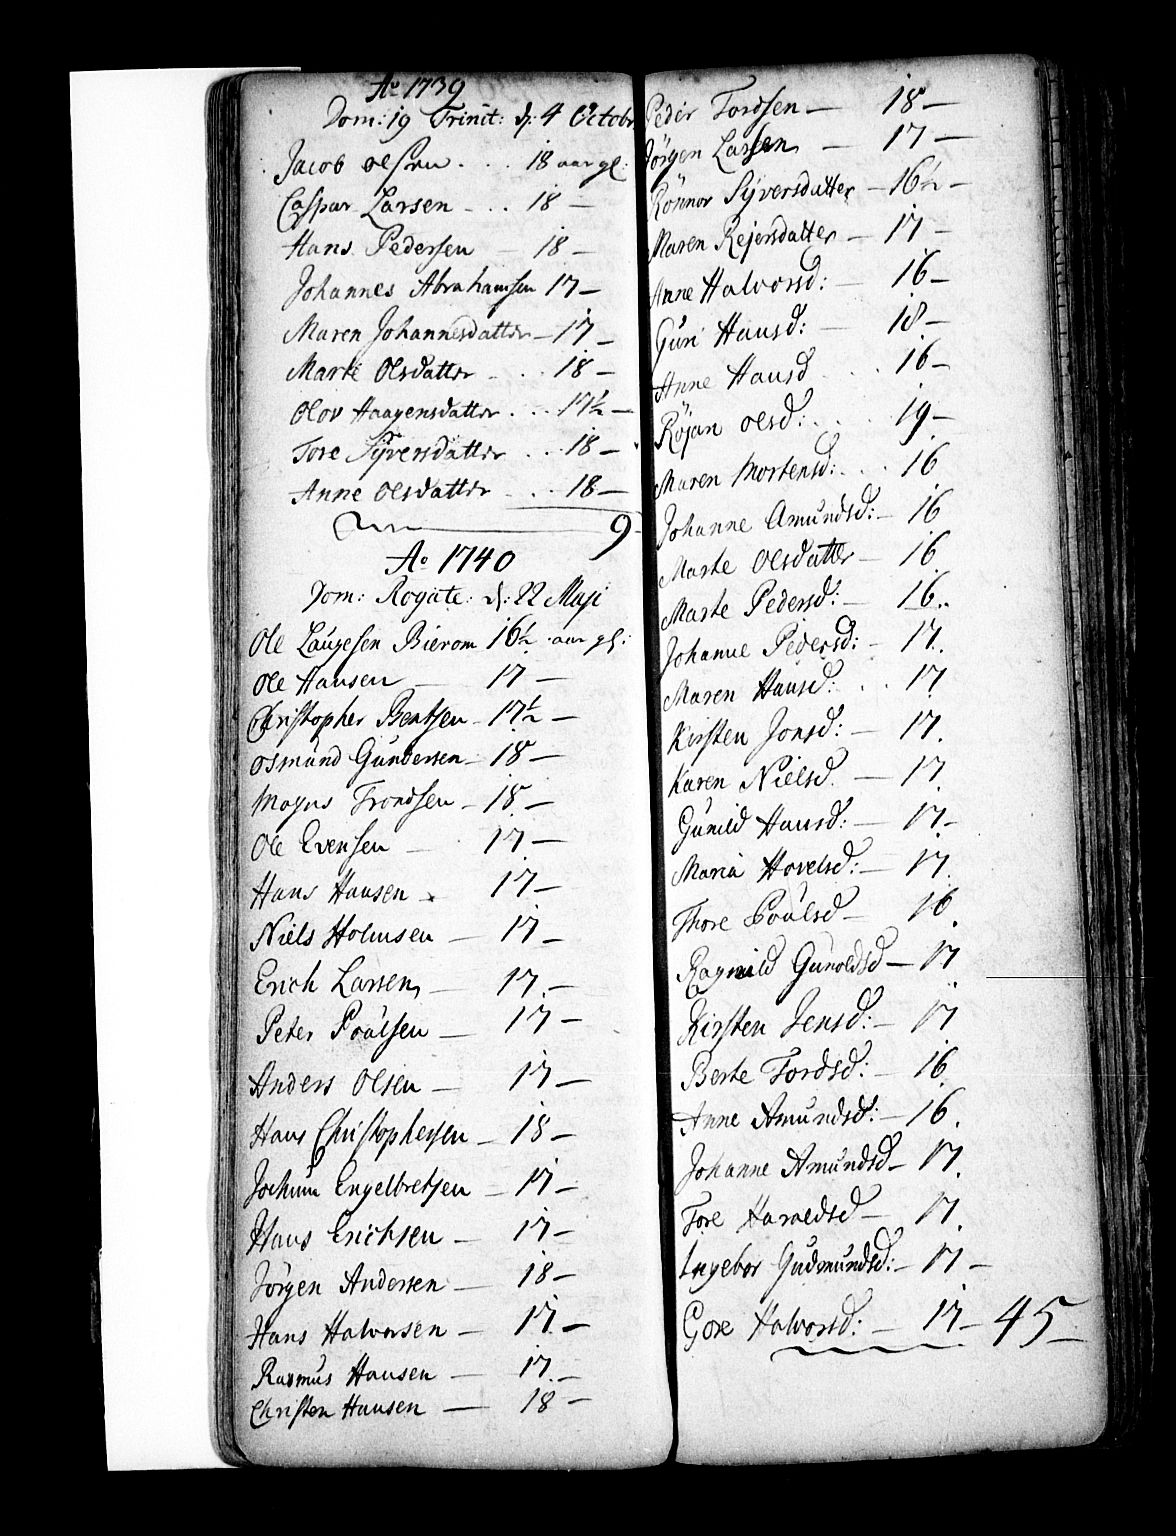 Ao 1739
Dom: 19 Trinit: d: 4 Octobr
Jacob Olsen . . . 18 aar gl:
Caspar Larsen - . . 18 –
Hans Pedersen – 18 –
Johannes Abrahamsen 17 –
Maren Johannesdatter – 17 –
Marte Olsdatter . . . 18 –
Olov Haagensdatter . . . 17½ –
Tore Syversdatter . . . 18 –
Anne Olsdatter . . . 18 –
9
Ao 1740
Dom: Rogate: d: 22 Maji
Ole Laugesen Bierom 16½ aar gl:
Ole Hansen – 17 –
Christopher Bentsen – 17½ –
Osmund Gundersen – 18 –
Mogns Trondsen – 18 –
Ole Evensen – 17 –
Hans Hansen – 17 –
Niels Holmsen – 17 –
Erich Larsen – 17 –
Peter Poulsen – 17 –
Anders Olsen – 17 –
Hans Christophersen – 18 –
Jochum Engelbretsen – 17 –
Hans Erichsen – 17 –
Jörgen Andersen – 18 –
Hans Halvorsen – 17 –
Rasmus Hansen – 17 –
Christen Hansen – 18 –
Peder Tordsen – 18 –
Jörgen Larsen – 17 –
Rönnor Syversdatter – 16½ –
Maren Rejersdatter – 17 –
Anne Halvorsd: – 16 –
Guri Hansd: – 18 –
Anne Hansd . . . 16 –
Röjan Olsd: . . . 19 –
Maren Mortensd: . . . 16
Johanne Amundsd: – 16
Marte Olsdatter – 16.
Marte Pedersd: – 16..
Johanne Pedersd: – 17.
Maren Hansd: . . 17
Kirsten Jonsd: – 17.
Karen Nielsd. – 17.
Gunild Hansd: – 17 –
Maria Hovelsd: – 17.
Thore Poulsd – 16.
Ragnild Gunoldsd – 17
Kirsten Jensd: – 17
Berte Tordsd: – 16.
Anne Amundsd: – 16.
Johanne Amundsd – 17.
Tore Haroldsd – 17.
Ingebor Gudmundsd: – 17 –
Gore Halvorsd: – 17 – 45